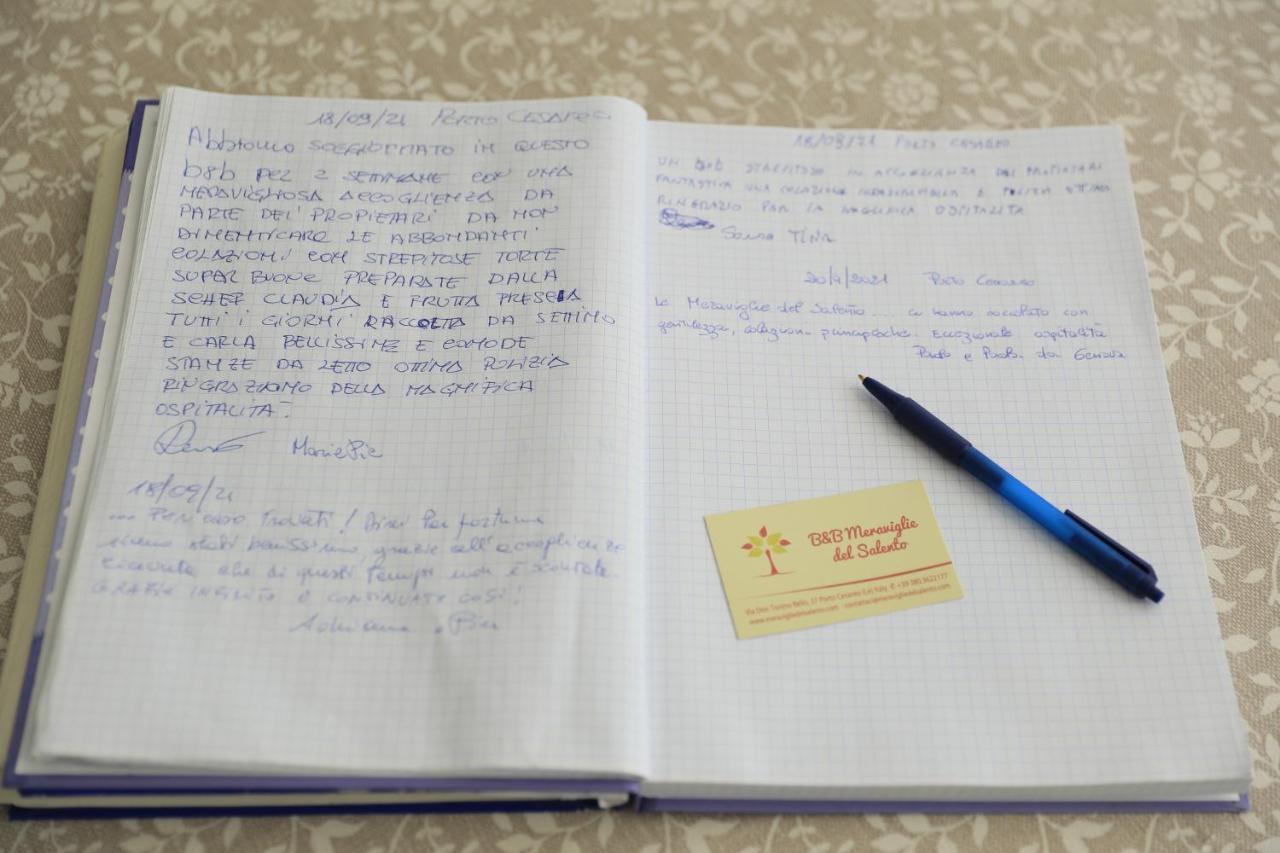 18/09/21 PORTO CESAREO
Abbiamo SOGGIORNATO IN QUESTO
b&b PER 2 SETTIMANE CON UNA
MERAVIGLIOSA ACCOGLIENZA DA
PARTE DEI PROPIETARI DA NON
DIMENTICARE LE ABBONDANTI
COLAZIONI CON STREPITOSE TORTE
SUPER BUONE PREPARATE DALLA
SCHEF CLAUDIA E FRUTTA FRESCA
TUTTI I GIORNI RACCOLTA DA SETTIMO
E CARLA BELLISSIME E COMODE
STANZE DA LETTO OTTIMA PULIZIA
RINGRAZIAMO DELLA MAGNIFICA
OSPITALITA'.
MariaPia
18/09/21
... Per caso trovati! Direi per fortuna
siamo stati benissimo, grazie all'accoglienza
ricevuta che di questi tempi non è scontata.
GRAZIE INFINITE E CONTINUATE COSÌ!
Adriana
18/09/21 PORTO CESAREO
UN B&B STREPITOSO IN ACCOGLIENZA DEI PROPIETARI
FANTASTICA UNA COLAZIONE E PULIZIA OTTIMA
RINGRAZIO PER LA MAGNIFICA OSPITALITA
TINA
2021 Porto Cesareo
Le Meraviglie del Salento ci hanno accolto con
gentilezza, colazioni principesche. Eccezionale ospitalità
e da Genova
B&B Meraviglie
del Salento
Via Don Tonino Bello, 37 Porto Cesareo (Le) Italy ✆ +39 380.3622177
www.meravigliedelsalento.com - contatta@meravigliedelsalento.com